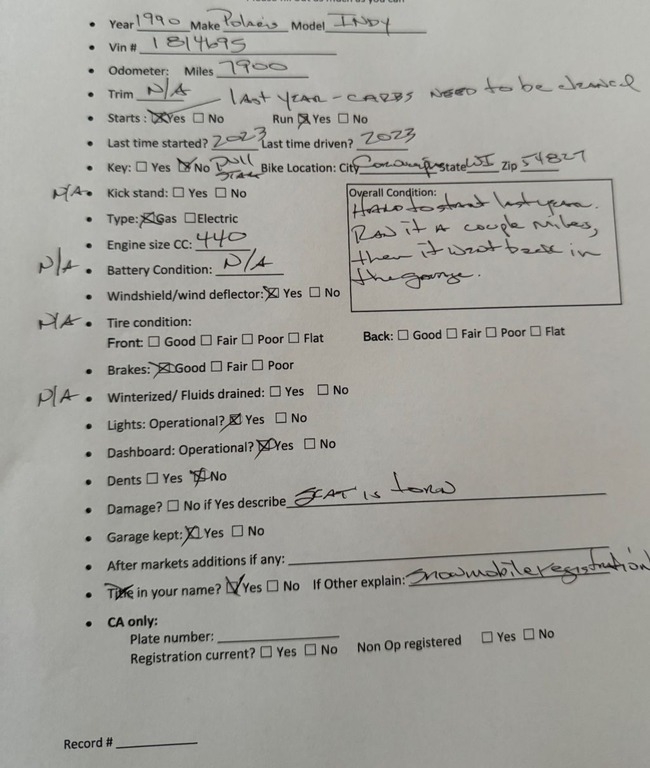 • Year 1990 Make Polaris Model INDY
• Vin # 1814695
• Odometer: Miles 7900
• Trim N/A last year - CARBS NEED to be cleaned
• Starts : ☒Yes ☐ No Run ☒ Yes ☐ No
• Last time started? 2023 Last time driven? 2023
• Key: ☐ Yes ☒ No Pull Start Bike Location: City State WI Zip 54827
N/A • Kick stand: ☐ Yes ☐ No
Overall Condition:
Hard to start last year.
Ran it a couple miles,
then it went back in
the garage.
• Type: ☒Gas ☐Electric
• Engine size CC: 440
N/A • Battery Condition: N/A
• Windshield/wind deflector: ☒ Yes ☐ No
N/A • Tire condition:
Front: ☐ Good ☐ Fair ☐ Poor ☐ Flat Back: ☐ Good ☐ Fair ☐ Poor ☐ Flat
• Brakes: ☒Good ☐ Fair ☐ Poor
N/A • Winterized/ Fluids drained: ☐ Yes ☐ No
• Lights: Operational? ☒ Yes ☐ No
• Dashboard: Operational? ☒Yes ☐ No
• Dents ☐ Yes ☒No
• Damage? ☐ No if Yes describe SEAT is torn
• Garage kept: ☒ Yes ☐ No
• After markets additions if any:
• Title in your name? ☑Yes ☐ No If Other explain: Snowmobile registration
• CA only:
Plate number:
Registration current? ☐ Yes ☐ No Non Op registered ☐ Yes ☐ No
Record #